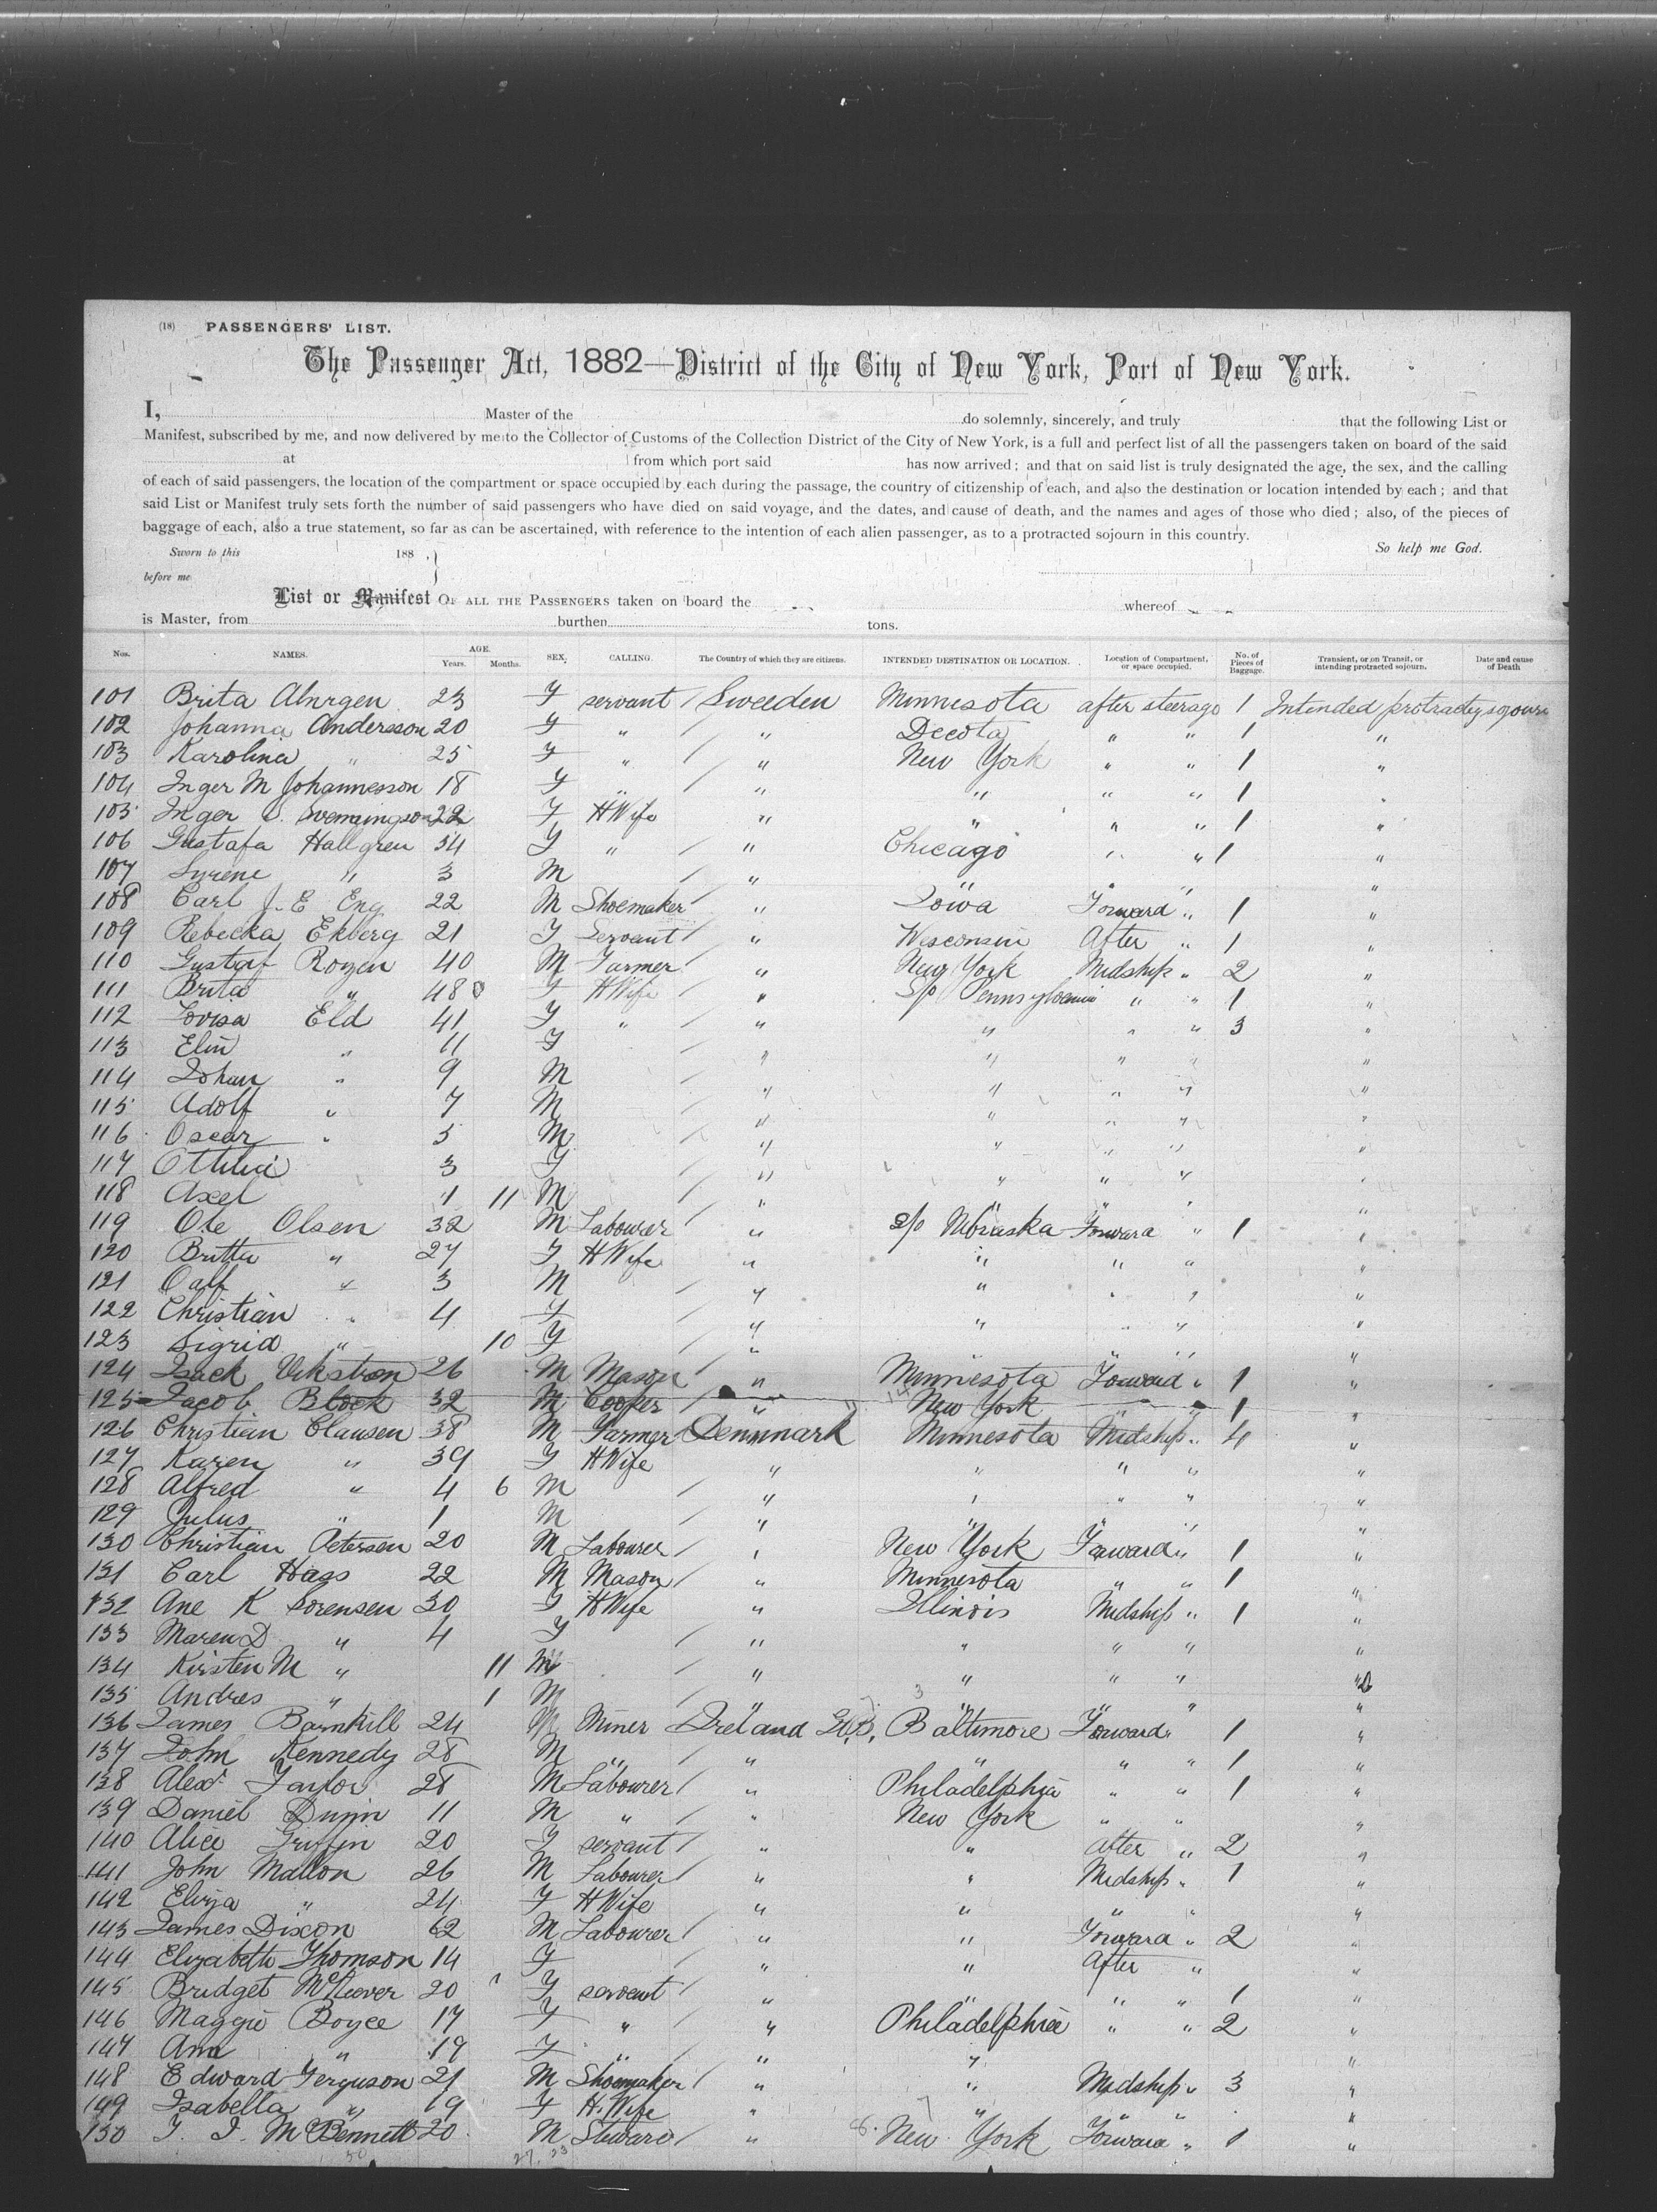 (18) PASSENGERS' LIST.
The Passenger Act, 1882—District of the City of New York, Port of New York.
I, Master of the do solemnly, sincerely, and truly that the following List or
Manifest, subscribed by me, and now delivered by me to the Collector of Customs of the Collection District of the City of New York, is a full and perfect list of all the passengers taken on board of the said
at from which port said has now arrived; and that on said list is truly designated the age, the sex, and the calling
of each of said passengers, the location of the compartment or space occupied by each during the passage, the country of citizenship of each, and also the destination or location intended by each; and that
said List or Manifest truly sets forth the number of said passengers who have died on said voyage, and the dates, and cause of death, and the names and ages of those who died; also, of the pieces of
baggage of each, also a true statement, so far as can be ascertained, with reference to the intention of each alien passenger, as to a protracted sojourn in this country.
Sworn to this 188 So help me God.
before me
List or Manifest OF ALL THE PASSENGERS taken on board the whereof
is Master, from burthen tons.
Nos. NAMES. AGE. Years. Months. SEX. CALLING. The Country of which they are citizens. INTENDED DESTINATION OR LOCATION. Location of Compartment, or space occupied. No. of Pieces of Baggage. Transient, or on Transit, or intending protracted sojourn. Date and cause of Death
101 Brita 23 F servant Sweeden Minnesota after steerage 1 Intended
102 Johanna Andersson 20 F " " Decota " " 1 "
103 Karolina " 25 F " " New York " " 1 "
104 Inger M Johannesson 18 F " " " " " 1 "
105 Inger 22 F HWife " " " " 1 "
106 Gustafa Hallgren 34 F " " Chicago " " 1 "
107 " 3 M " " " " "
108 Carl J. E Eng 22 M Shoemaker " Iowa Forward " 1 "
109 Rebecka Ekberg 21 F Servant " Wesconsin After " 1 "
110 Gustaf 40 M Farmer " New York Midship " 2 "
111 Brita " 48 F HWife " S/o Pennsylvania " " 1 "
112 Lovisa Eld 41 F " " " " " 3 "
113 Elin " 11 F " " " " "
114 Johan " 9 M " " " " "
115 Adolf " 7 M " " " " "
116 Oscar " 5 M " " " " "
117 Ottilia 3 F " " " " "
118 Axel " 11 M " " " " "
119 Ole Olsen 32 M Labourer " S/o Nibraska Forward " 1 "
120 Britta " 27 F HWife " " " " "
121 " 3 M " " " " "
122 Christian " 4 F " " " " "
123 Sigrid " 10 F " " " " "
124 Isack 26 M Mason " Minnesota Forward " 1 "
125 Jacob Block 32 M Cooper " New York " 1 "
126 Christian Clausen 38 M Farmer Dennmark Minnesota Midship " 4 "
127 Karen " 39 F HWife " " " " "
128 Alfred " 4 6 M " " " " "
129 Julus " 1 M " " " " "
130 Christian Petersen 20 M Labourer " New York Forward " 1 "
131 Carl 22 M Mason " Minnesota " " 1 "
132 Ane K Sorensen 30 F HWife " Illinois Midship " 1 "
133 Maren D " 4 F " " " " "
134 Kirsten M " 11 " " " " "
135 Andres " 1 M " " " " "
136 James Barnhill 24 M Miner Ireland G.B. Baltimore Forward " 1 "
137 John Kennedy 28 M " " " " " 1 "
138 Alexr Taylor 28 M Labourer " Philadelphia " " 1 "
139 Daniel 11 M " " New York " " "
140 Alice Griffin 20 F servant " " After " 2 "
141 John Mallon 26 M Labourer " " Midship " 1 "
142 Eliza " 24 F HWife " " " " "
143 James Dixon 62 M Labourer " " Forward " 2 "
144 Elizabeth Thomson 14 F " " After " "
145 Bridget 20 F servent " " " " 1 "
146 Maggie Boyce 17 F " " Philadelphia " " 2 "
147 Ann " 19 F " " " " " "
148 Edward Ferguson 21 M Shoemaker " " Midship " 3 "
149 Isabella " 19 F H.Wife " " " " "
150 McBennett 20 M Steward " New York Forward " 1 "